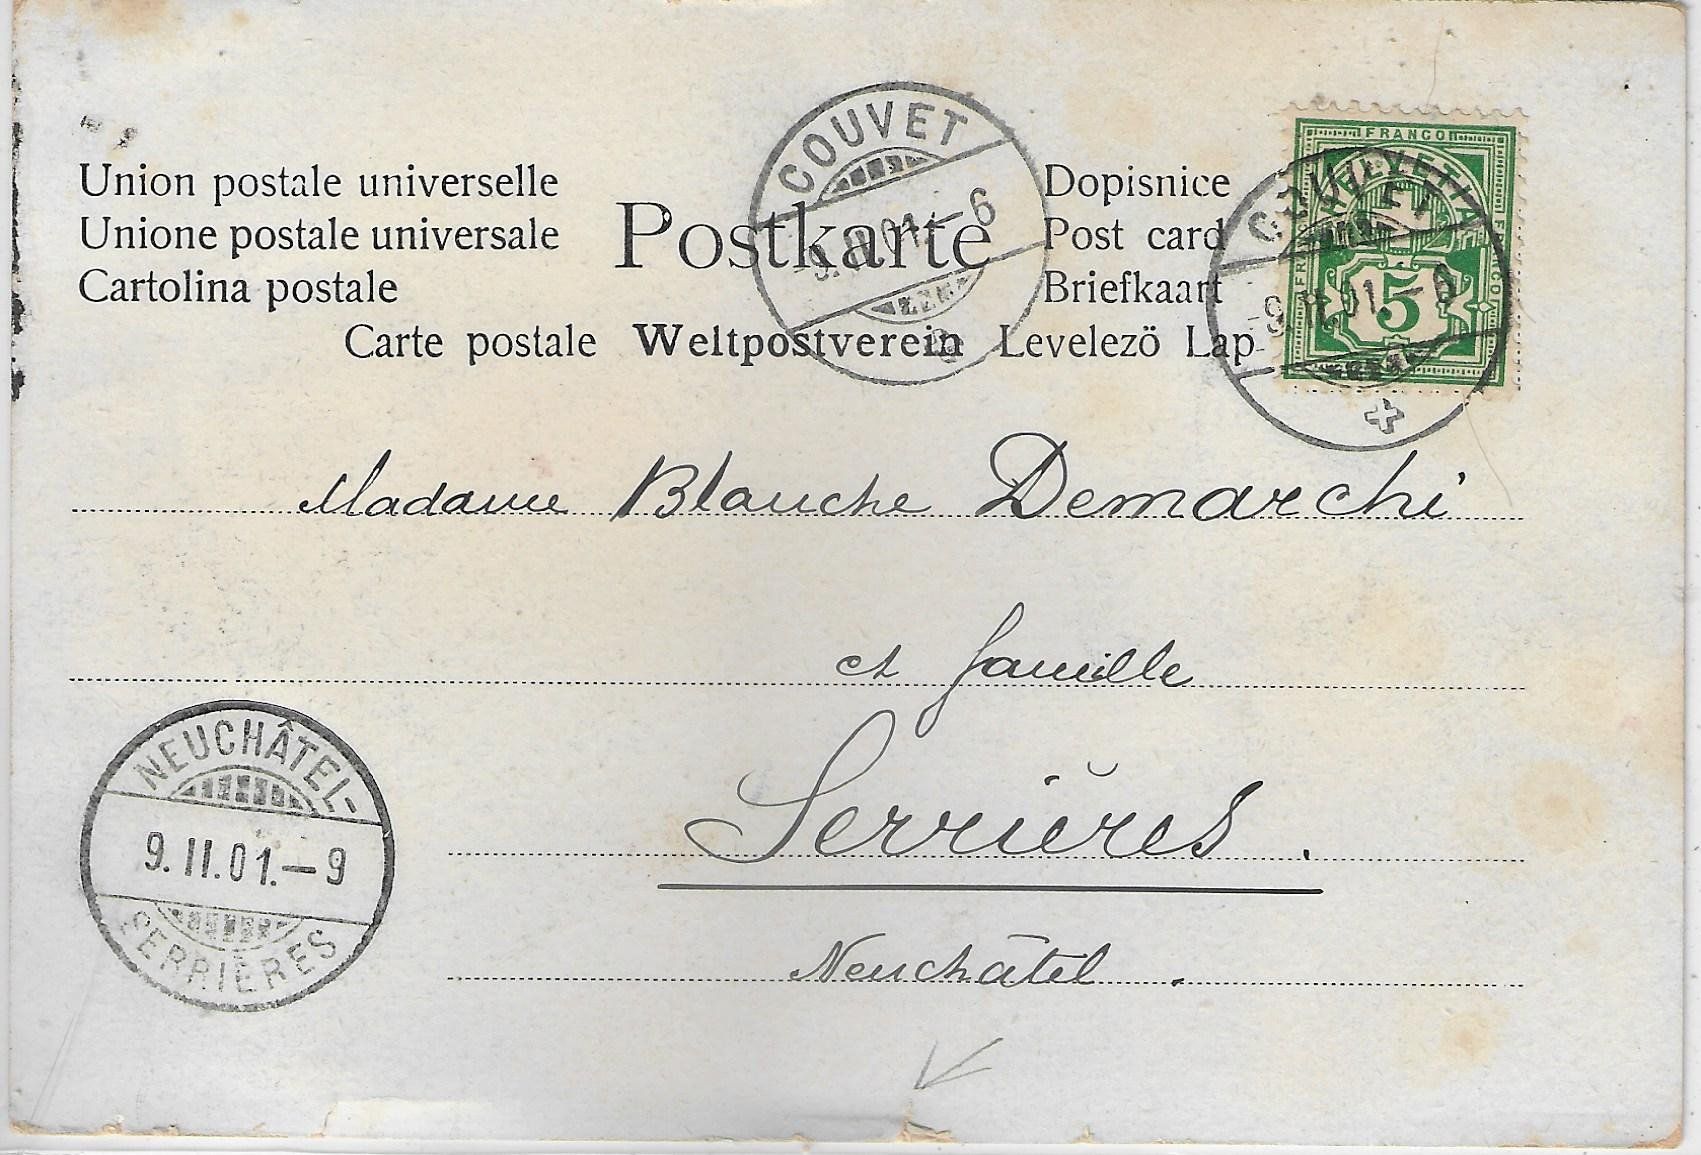 Union postale universelle
Unione postale universale
Cartolina postale
Carte postale
Postkarte
Weltpostverein
Dopisnice
Post card
Briefkaart
Levelezö Lap
COUVET
9.II.01.–6
FRANCO
HELVETIA
FRANCO
5
COUVET
-9.II.01.–6
Madame Blanche Demarchi
et famille
Serrières.
Neuchâtel.
NEUCHÂTEL-
9.II.01.–9
SERRIÈRES